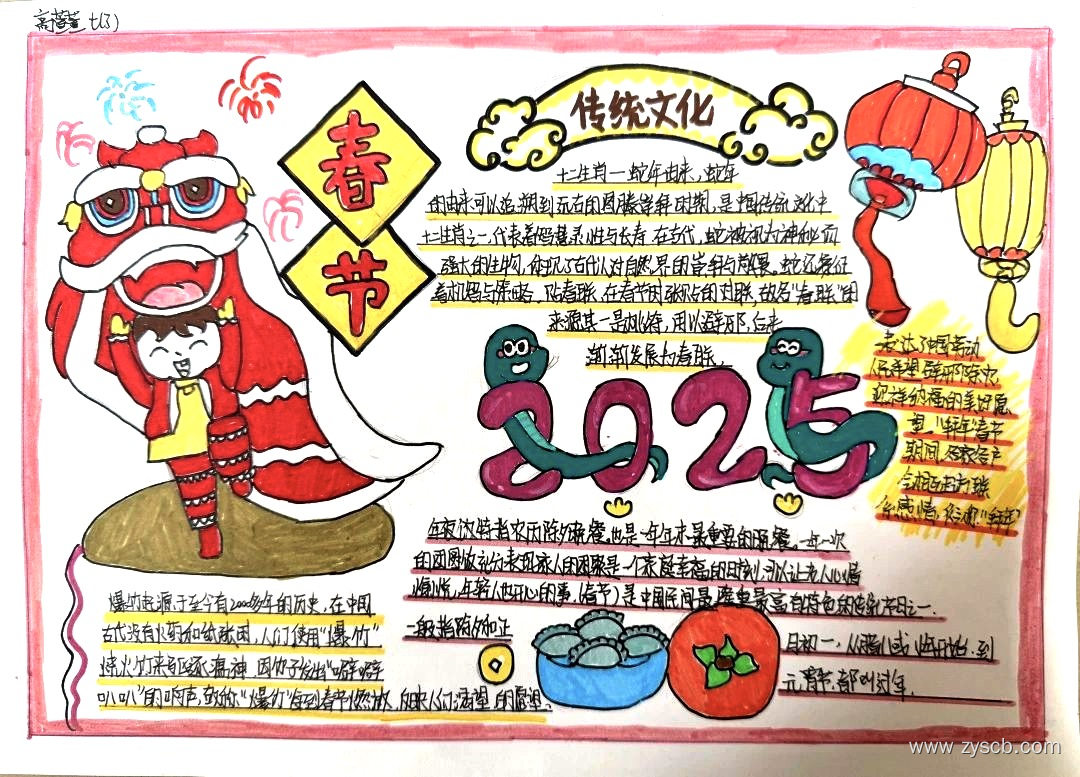 七(3)
春节
传统文化
十二生肖一蛇年由来,蛇年
的由来可以追溯到远古的图腾崇拜时期,是中国传统文化中
十二生肖之一,代表着智慧灵性与长寿.在古代,蛇被视为神秘而
强大的生物,体现了古代人对自然界的崇拜与敬畏.蛇还象征
着机智与策略.贴春联.在春节时张贴的对联,故名"春联"的
来源其一是桃符,用以避邪,后来
渐渐发展为春联.
2025
表达了中国劳动
人民希望辟邪除灾
迎祥纳福的美好愿
望."拜年"春节
期间
年夜饭特指农历除夕晚餐.也是一年年末最重要的晚餐.一年一次
的团圆饭充分表现家人的团聚是一个家庭幸福的时刻,可以让老人心情
愉悦,年轻人也开心的事.(春节)是中国民间最隆重最富有特色的传统节日之一.
一般指除夕和正
月初一,从腊八或 开始,到
元宵节,都叫过年.
爆竹起源于至今有2000多年的历史,在中国
古代没有火药和纸张时,人们使用"爆竹"
烧火竹来驱逐瘟神.因竹子发出"噼噼
叭叭"的响声,故称"爆竹"每到春节燃放,反映人们渴望 的愿望.
www.zyscb.com